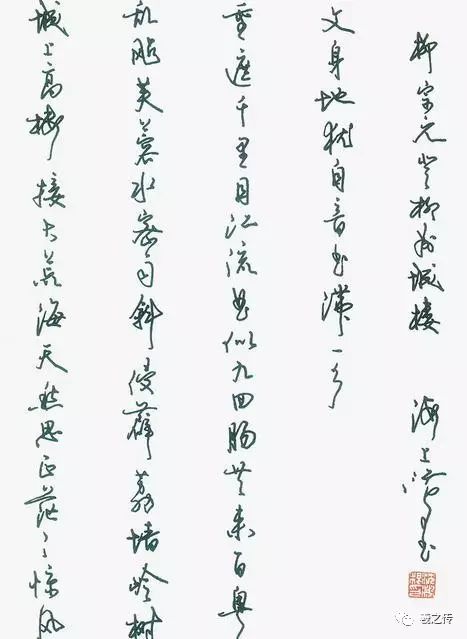 城上高楼接大荒海天愁思正茫茫惊风
乱飐芙蓉水密雨斜侵薜荔墙岭树
重遮千里目江流曲似九回肠共来百粤
文身地犹自音书滞一乡
柳宗元登柳州城楼
海上书
羲之传